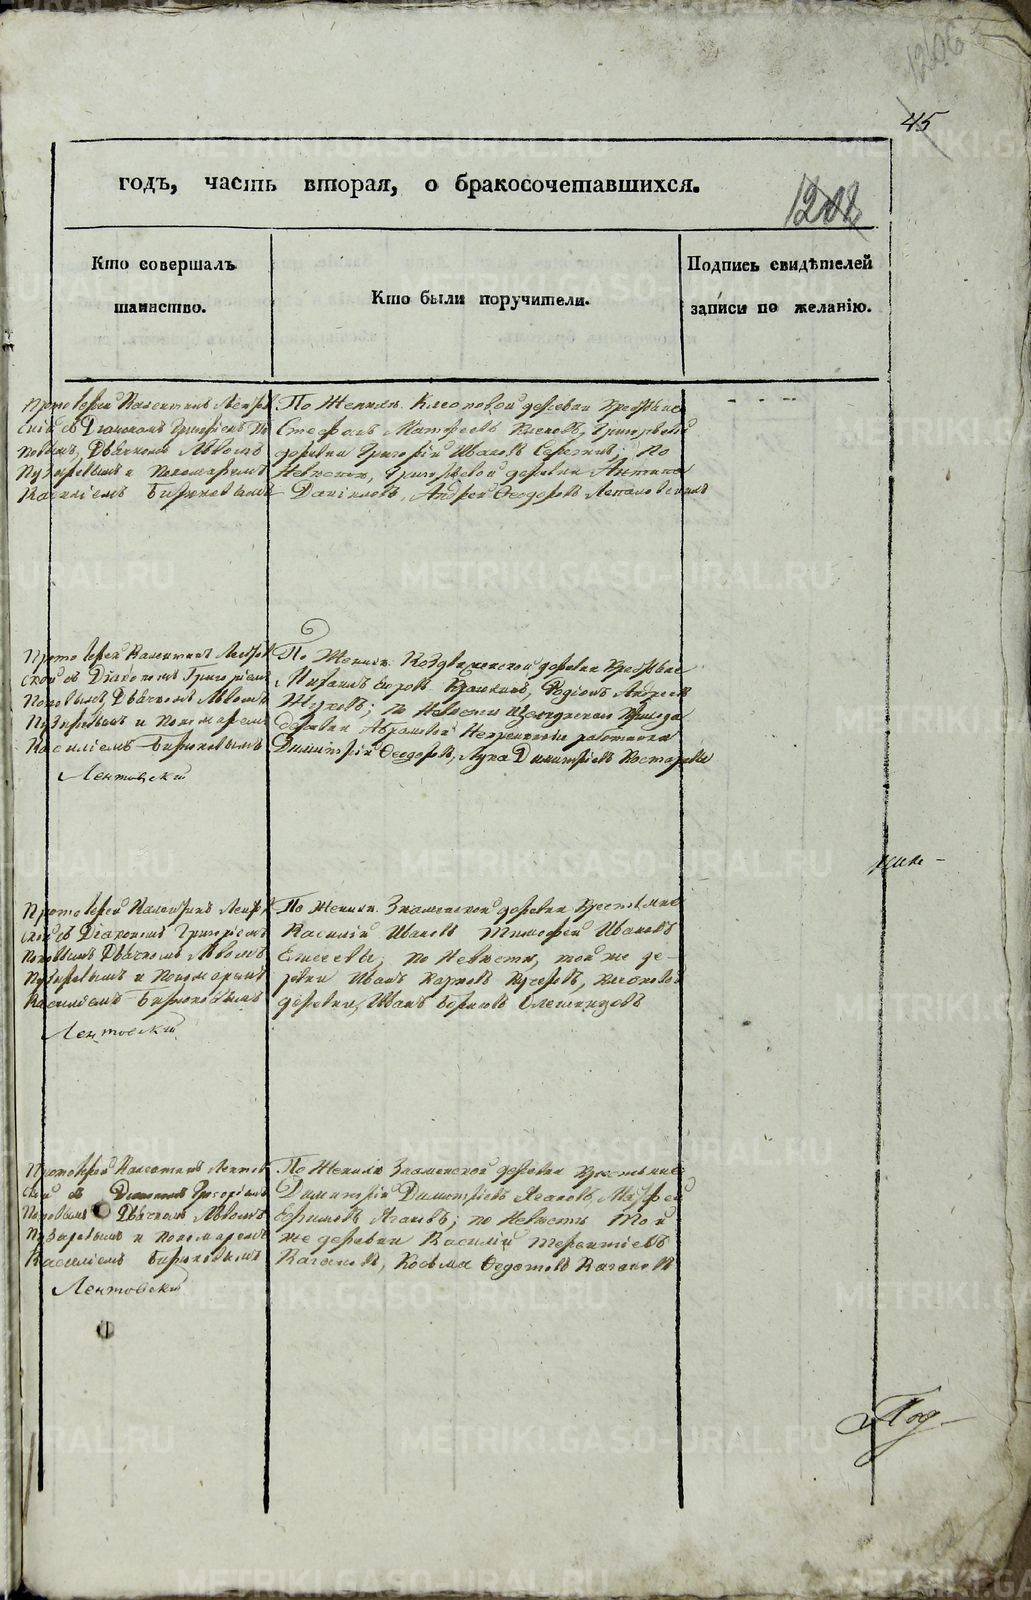 45
годъ, часть вторая, о бракосочетавшихся.
Кто совершалъ таинство.
Кто были поручители.
Подпись свидѣтелей записи по желанію.
Протоіерей Валентинъ Лентов
скій съ Діакономъ Григоріемъ По
повымъ, Дьячкомъ Львомъ
Пузыревымъ и Пономаремъ
Василіемъ Бирюковымъ
По Женихѣ Клеоповой деревни Крестьяне
Стефанъ Матѳеевъ Григорьевой
деревни Григорій Ивановъ По
Невестѣ, Григорьевой деревни Антипа
Даніиловъ, Андрей Ѳеодоровъ
Протоіерей Валентинъ Лентов
ской съ Діакономъ Григоріемъ
Поповымъ, Дьячкомъ Львомъ
Пузыревымъ и Пономаремъ
Василіемъ Бирюковымъ
Лентовскій
По Женихѣ Воздвиженской деревни Крестьяне
Егоровъ Родіонъ Андреевъ
по Невестѣ прихода
деревни Непременные работники
Димитрій Ѳеодоровъ, Лука Димитріевъ Костаревы
Протоіерей Валентинъ Лентов
ской съ Діакономъ Григоріемъ
Поповымъ Дьячкомъ Львомъ
Пузыревымъ и Пономаремъ
Василіемъ Бирюковымъ
Лентовскій
По Женихѣ Знаменской деревни Крестьяне
Василій Ивановъ Тимофей Ивановъ
Елисеевы; по Невестѣ, той же де-
ревни Иванъ Карповъ Клеоповой
деревни, Иванъ
Протоіерей Валентинъ Лентов
скій съ Діакономъ Григоріемъ
Поповымъ Дьячкомъ Львомъ
Пузыревымъ и Пономаремъ
Василіемъ Бирюковымъ
Лентовскій
По Женихѣ Знаменской деревни Крестьяне
Димитрій Димитріевъ
по Невестѣ той
же деревни Василій Терентіевъ
Козьма Ѳедотовъ
Под-
METRIKI.GASO-URAL.RU